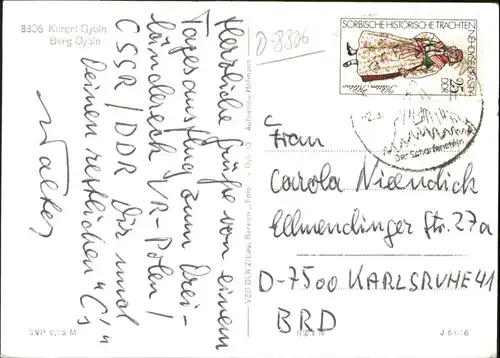 8806 Kurort Oybin
Berg Oybin
D-8806
Herzliche Grüße von einem
Tagesausflug zum Drei-
ländereck VR-Polen/
CSSR/DDR Dir und
Deinen restlichen "C's"
Walter
VEB DLK Zittau, Bereich "Foto" Oybin Aufnahme: Hofmann
SORBISCHE HISTORISCHE TRACHTEN
25
DDR
Der Scharfenstein
Frau
Carola Niendick
Ellmendinger Str. 27a
D-7500 KARLSRUHE 41
BRD
EVP 0,25 M